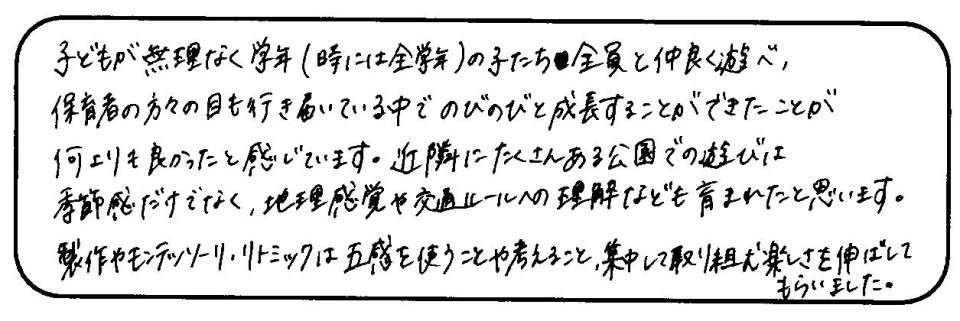 子どもが無理なく学年(時には全学年)の子たち全員と仲良く遊べ,
保育者の方々の目も行き届いている中でのびのびと成長することができたことが
何よりも良かったと感じています。近隣にたくさんある公園での遊びは
季節感だけでなく,地理感覚や交通ルールへの理解なども育まれたと思います。
製作やモンテッソーリ・リトミックは五感を使うことや考えること,集中して取り組む楽しさを伸ばして
もらいました。